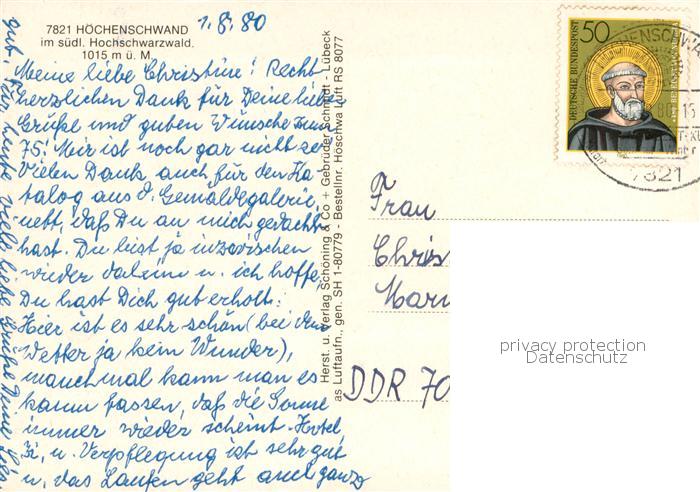 7821 HÖCHENSCHWAND
im südl. Hochschwarzwald.
1015 m ü. M.
1.8.80
Meine liebe Christine! Recht
herzlichen Dank für Deine lieben
Grüße und guten Wünsche zum
75! Mir ist noch gar nicht so
Vielen Dank auch für den Ka-
talog aus d. Gemäldegalerie,
nett, daß Du an mich gedacht
hast. Du bist ja inzwischen
wieder daheim u. ich hoffe,
Du hast Dich gut erholt.
Hier ist es sehr schön (bei dem
Wetter ja kein Wunder),
manchmal kann man es
kaum fassen, daß die Sonne
immer wieder scheint. Hotel,
Zi, u. Verpflegung ist sehr gut
u. das Laufen geht auch ganz
gut. Für heute viele liebe Grüße Deine
Herst. u. Verlag Schöning & Co + Gebrüder Schmidt - Lübeck
as Luftaufn., gen. SH 1-80779 - Bestellnr. Höschwa Luft RS 8077
50
DEUTSCHE BUNDESPOST
7821
Frau
Chris
Mar
DDR 70
privacy protection
Datenschutz